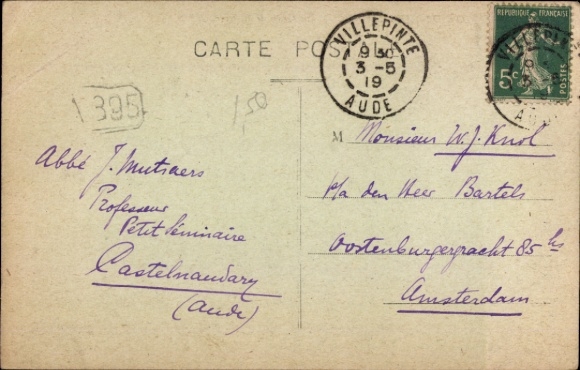 CARTE POSTALE
VILLEPINTE
9 30
3 - 5
19
AUDE
REPUBLIQUE FRANÇAISE
5c
POSTES
1395
1,50
M
Abbé J. Mutsaers
Professeur
Petit Séminaire
Castelnaudary
(Aude)
Monsieur W. J. Knol
p/a den Heer Bartels
Oostenburgergracht 85 hs
Amsterdam